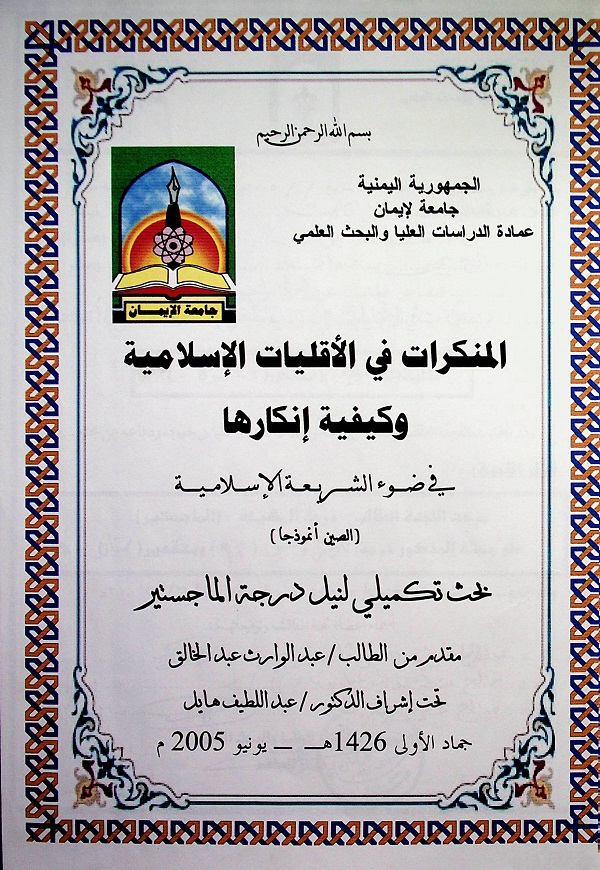 بسم الله الرحمن الرحيم
الجمهورية اليمنية
جامعة لإيمان
عمادة الدراسات العليا والبحث العلمي
جامعة الإيمــان
المنكرات في الأقليات الإسلامية
وكيفية إنكارها
في ضوء الشريعة الإسلامية
(الصين أنموذجا)
بحث تكميلي لنيل درجة الماجستير
مقدم من الطالب / عبد الوارث عبد الخالق
تحت إشراف الدكتور / عبد اللطيف هايل
جماد الأولى 1426هـ ــ يونيو 2005 م